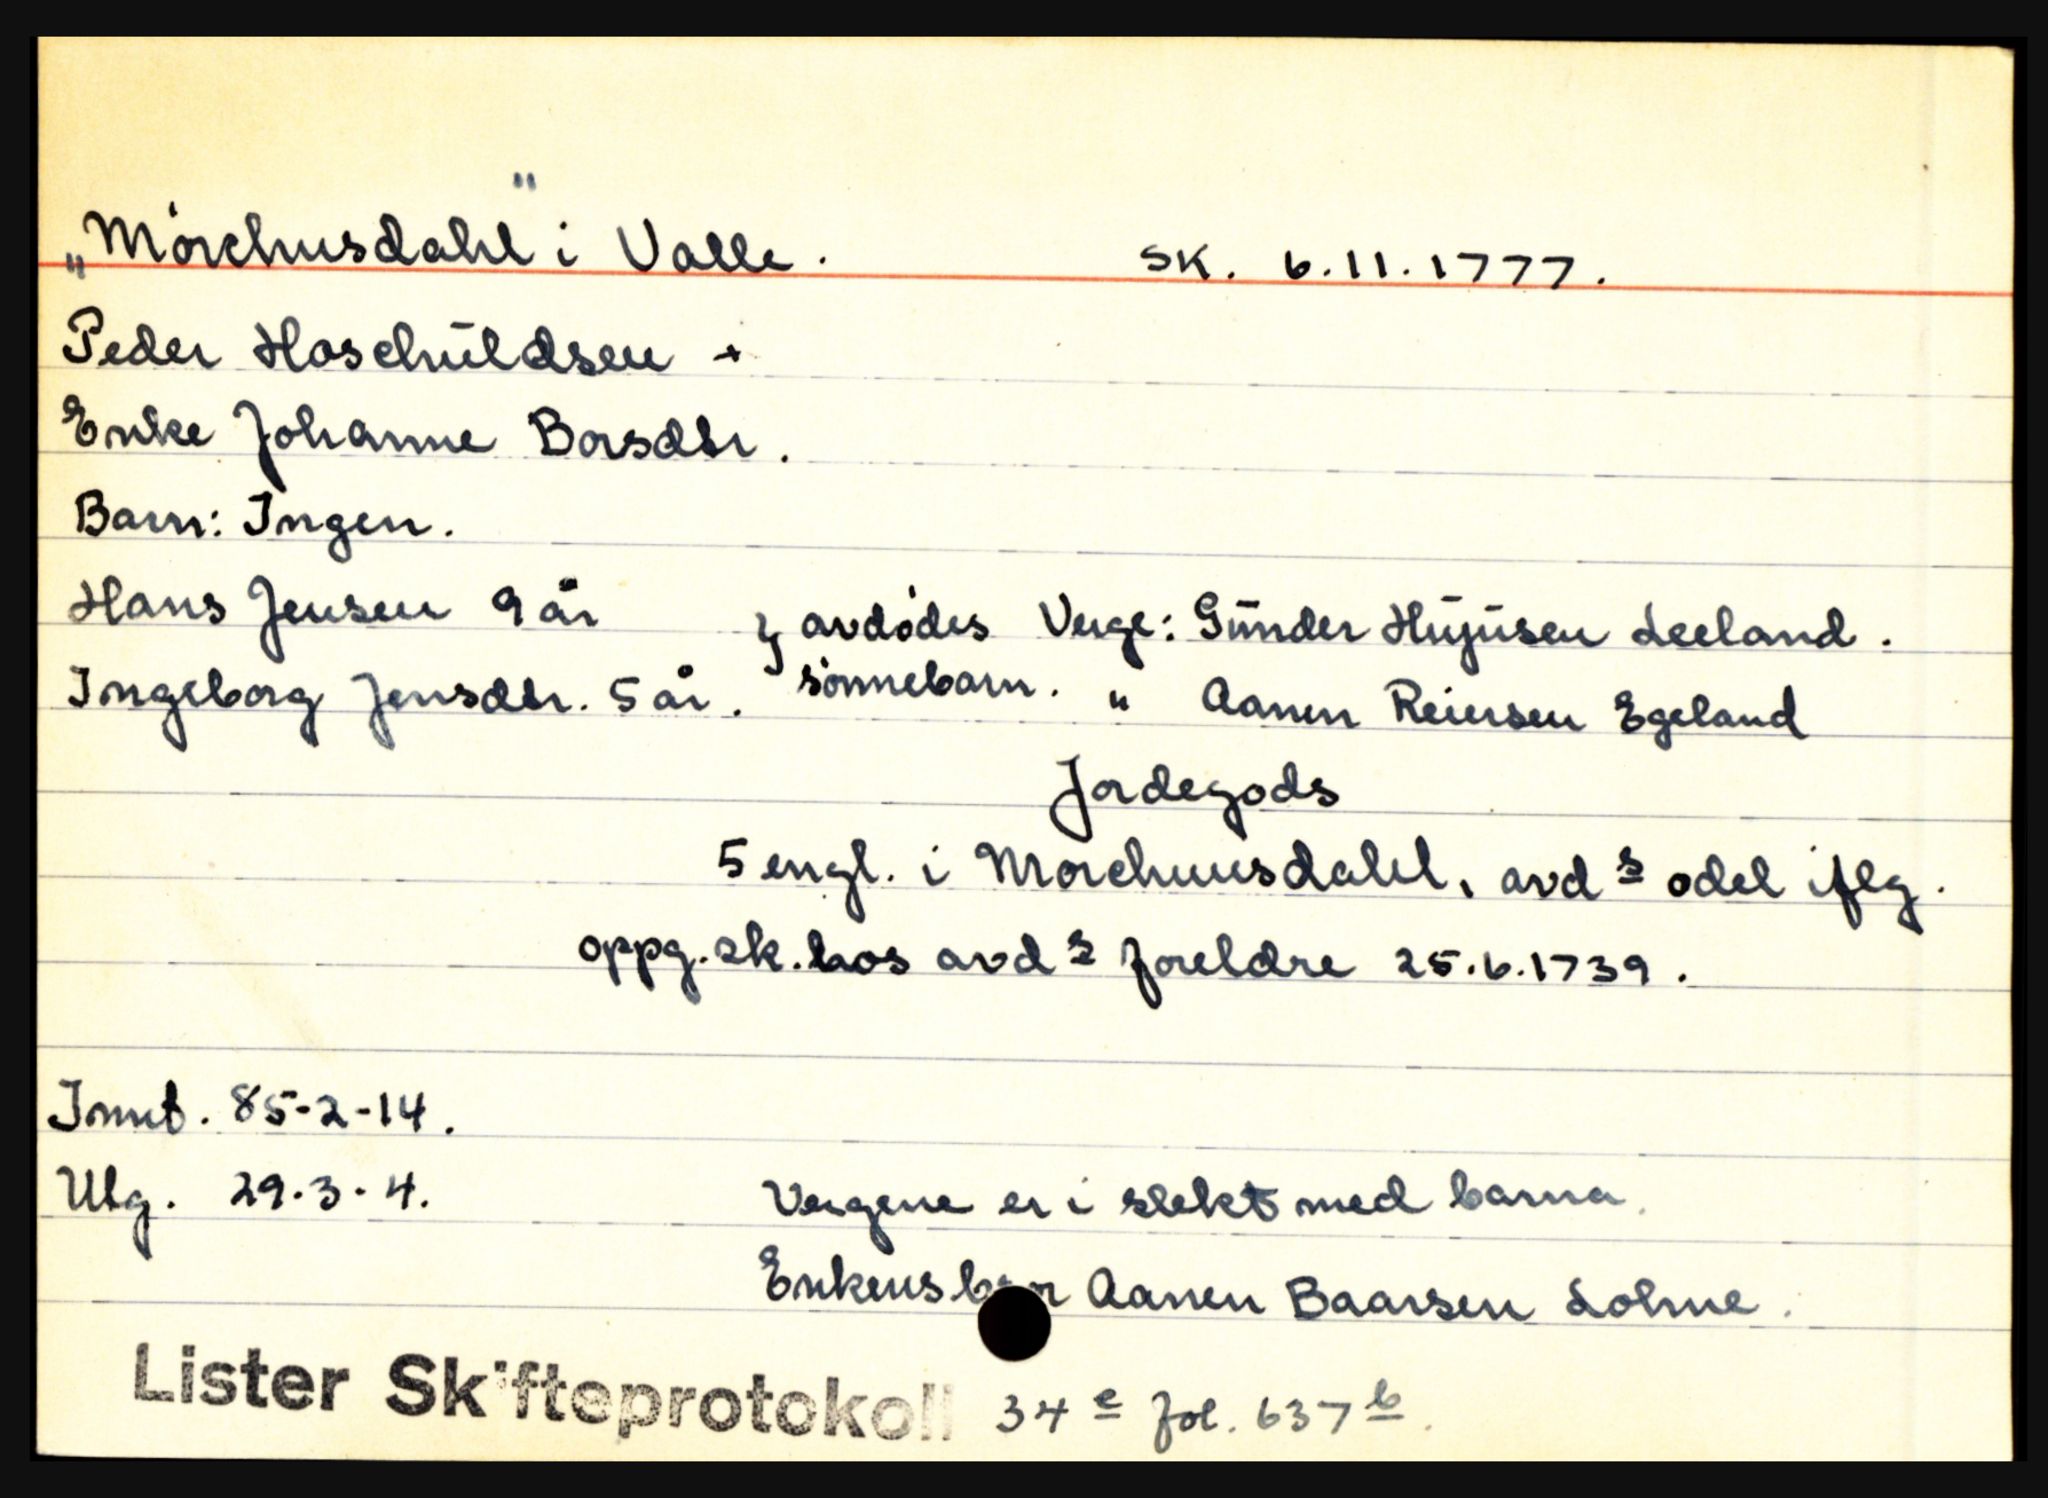 „Mörchusdahl" i Valle. SK. 6.11.1777.
Peder Haschüldsen +
Enke Johanne Borsdtr.
Barn: Ingen.
Hans Jensen 9 år } avdødes Verge: Günder Hüjüsen Leeland.
Ingeborg Jensdtr. 5 år. sønnebarn. " Aanen Reiersen Egeland
Jordegods
5 engl. i Morchuusdahl, avd s odel iflg.
oppg. sk. hos avd s foreldre 25.6.1739.
Innt. 85-2-14.
Utg. 29-3-4. Vergene er i slekt med barna.
Enkens bror Aanen Baarsen Lohne.
Lister Skifteprotokoll 34 c fol. 637 b.